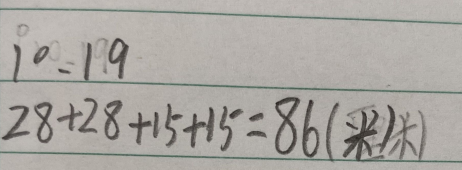 1°=19
28+28+15+15=86(米)